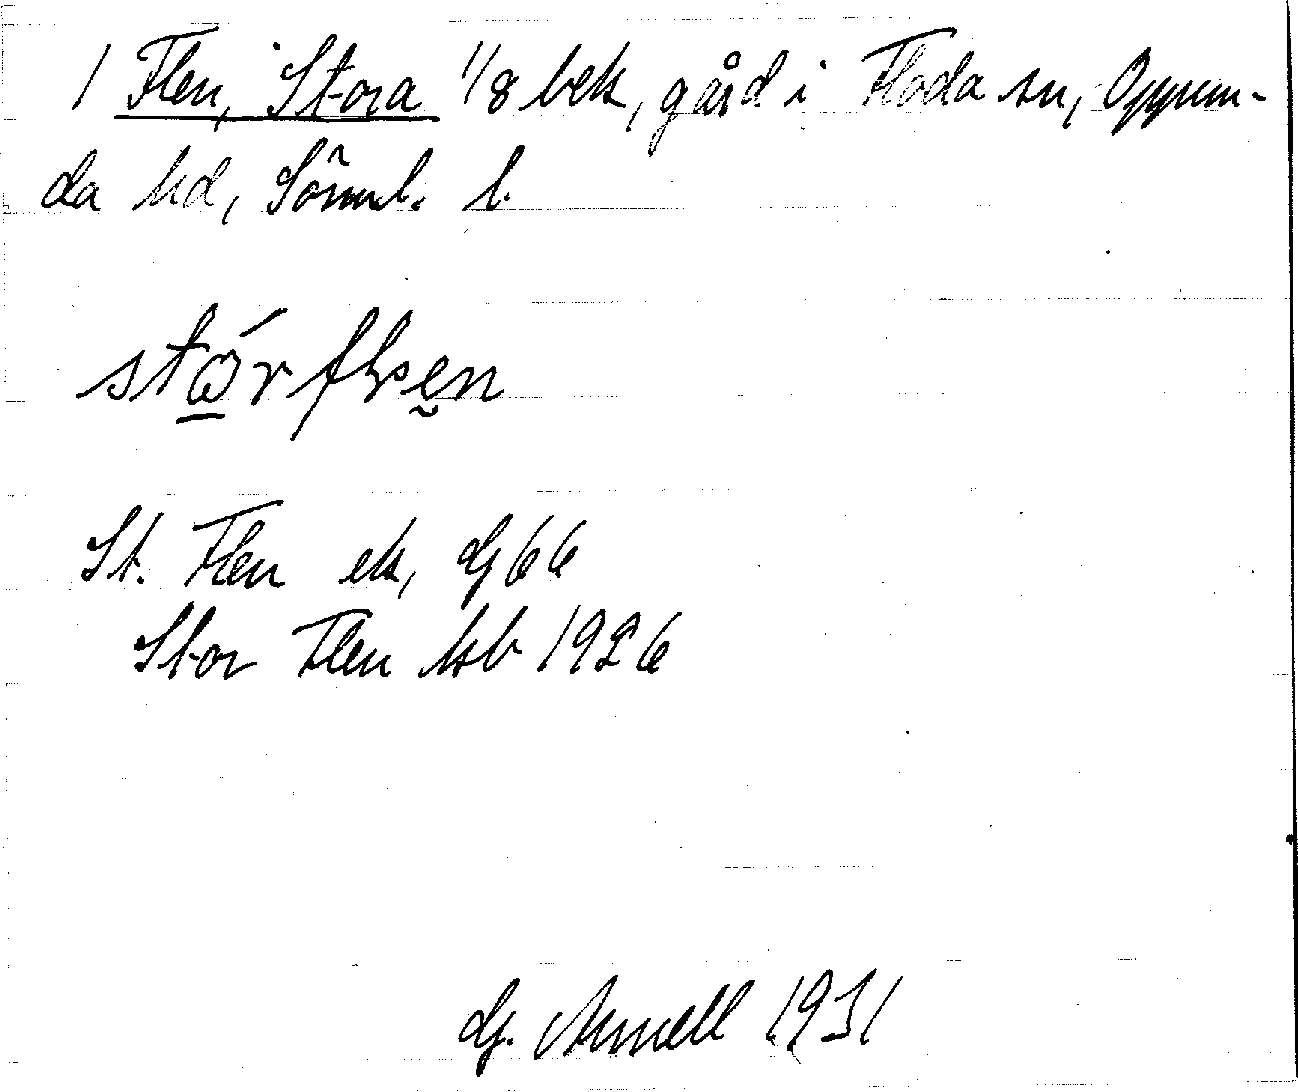 1 Flen, Stora 1/8 bek, gård i Floda sn, Oppun-
da hd, Sörml. l.
stǿrflen
St. Flen ek, Gj 66
Stor Flen kb 1926
G. Arnell 1931